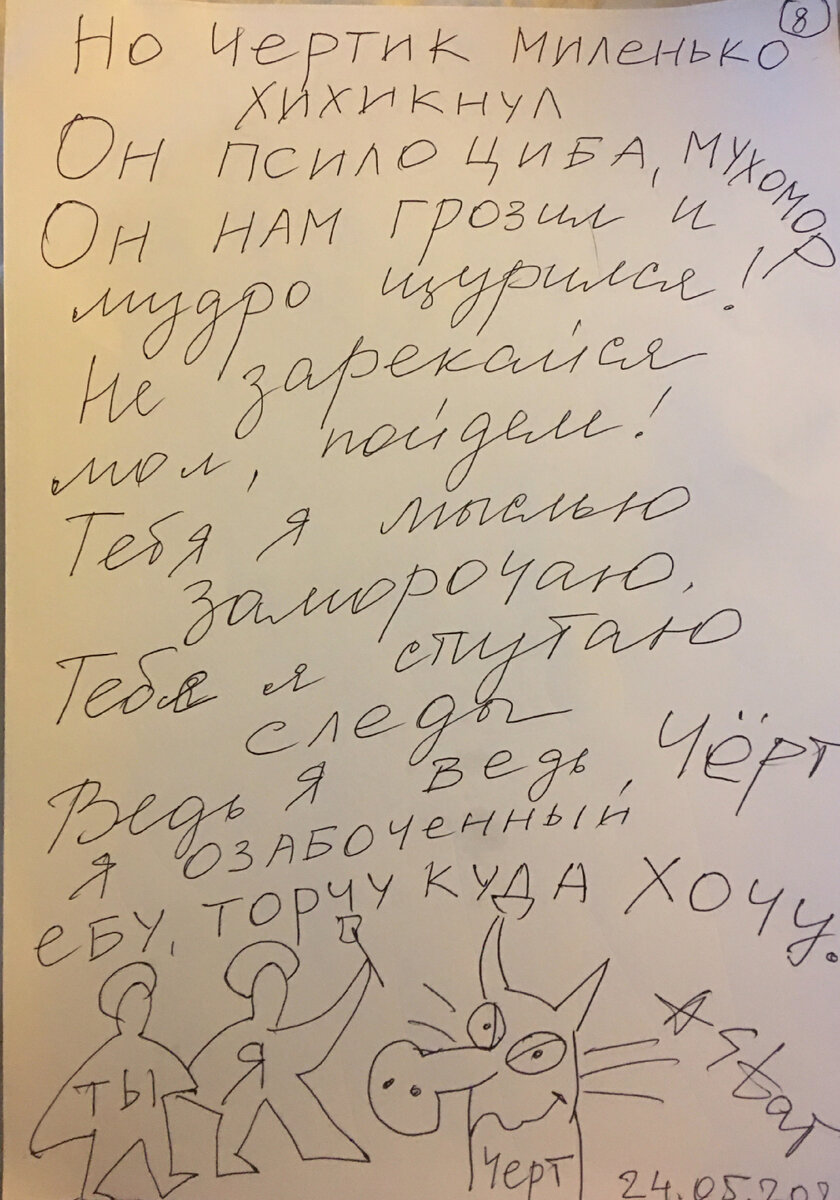 8
Но чертик миленько
хихикнул
Он псилоциба, мухомор
Он нам грозил и
мудро щурился!
Не зарекайся
мол, пойдем!
Тебя я мыслью
заморочаю,
Тебя я спутаю
следы
Ведь я ведь, Чёрт
я озабоченный
ебу, торчу куда хочу.
ты
Я
Черт
24.05.20